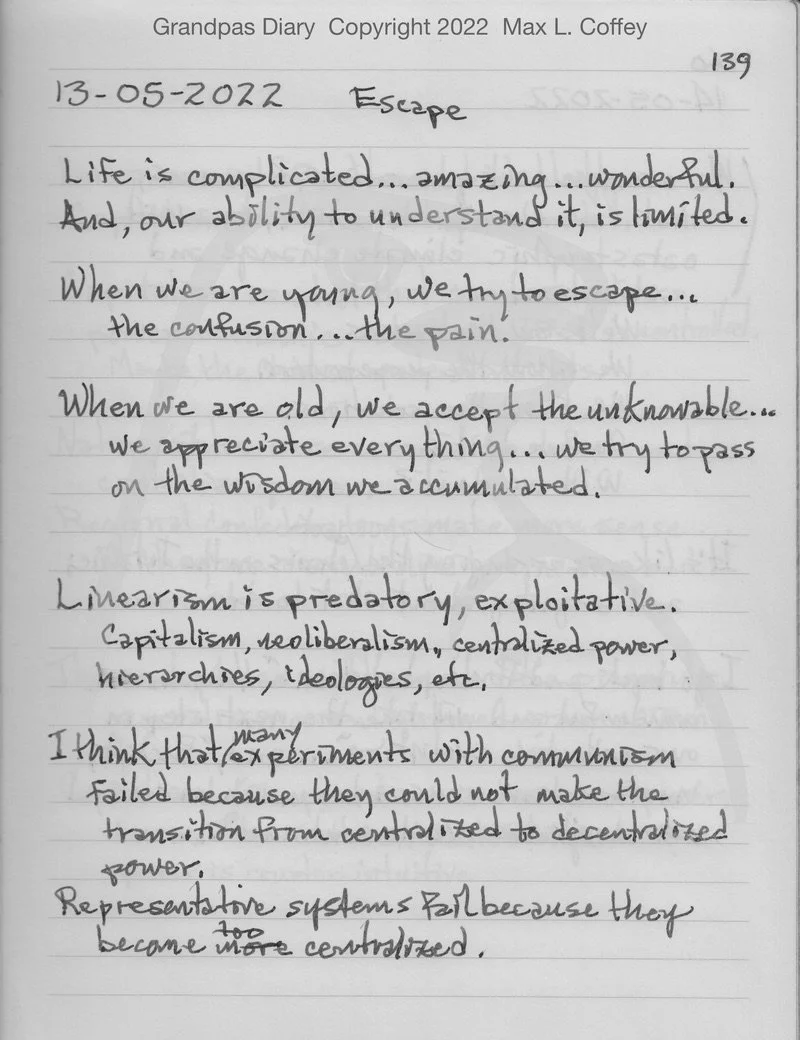 Grandpas Diary  Copyright 2022  Max L. Coffey
139
13-05-2022 Escape
Life is complicated...amazing...wonderful.
And, our ability to understand it, is limited.
When we are young, we try to escape...
the confusion...the pain.
When we are old, we accept the unknowable...
we appreciate everything...we try to pass
on the wisdom we accumulated.
Linearism is predatory, exploitative.
Capitalism, neoliberalism, centralized power,
hierarchies, ideologies, etc.
I think that many experiments with communism
failed because they could not make the
transition from centralized to decentralized
power.
Representative systems fail because they
become more too centralized.